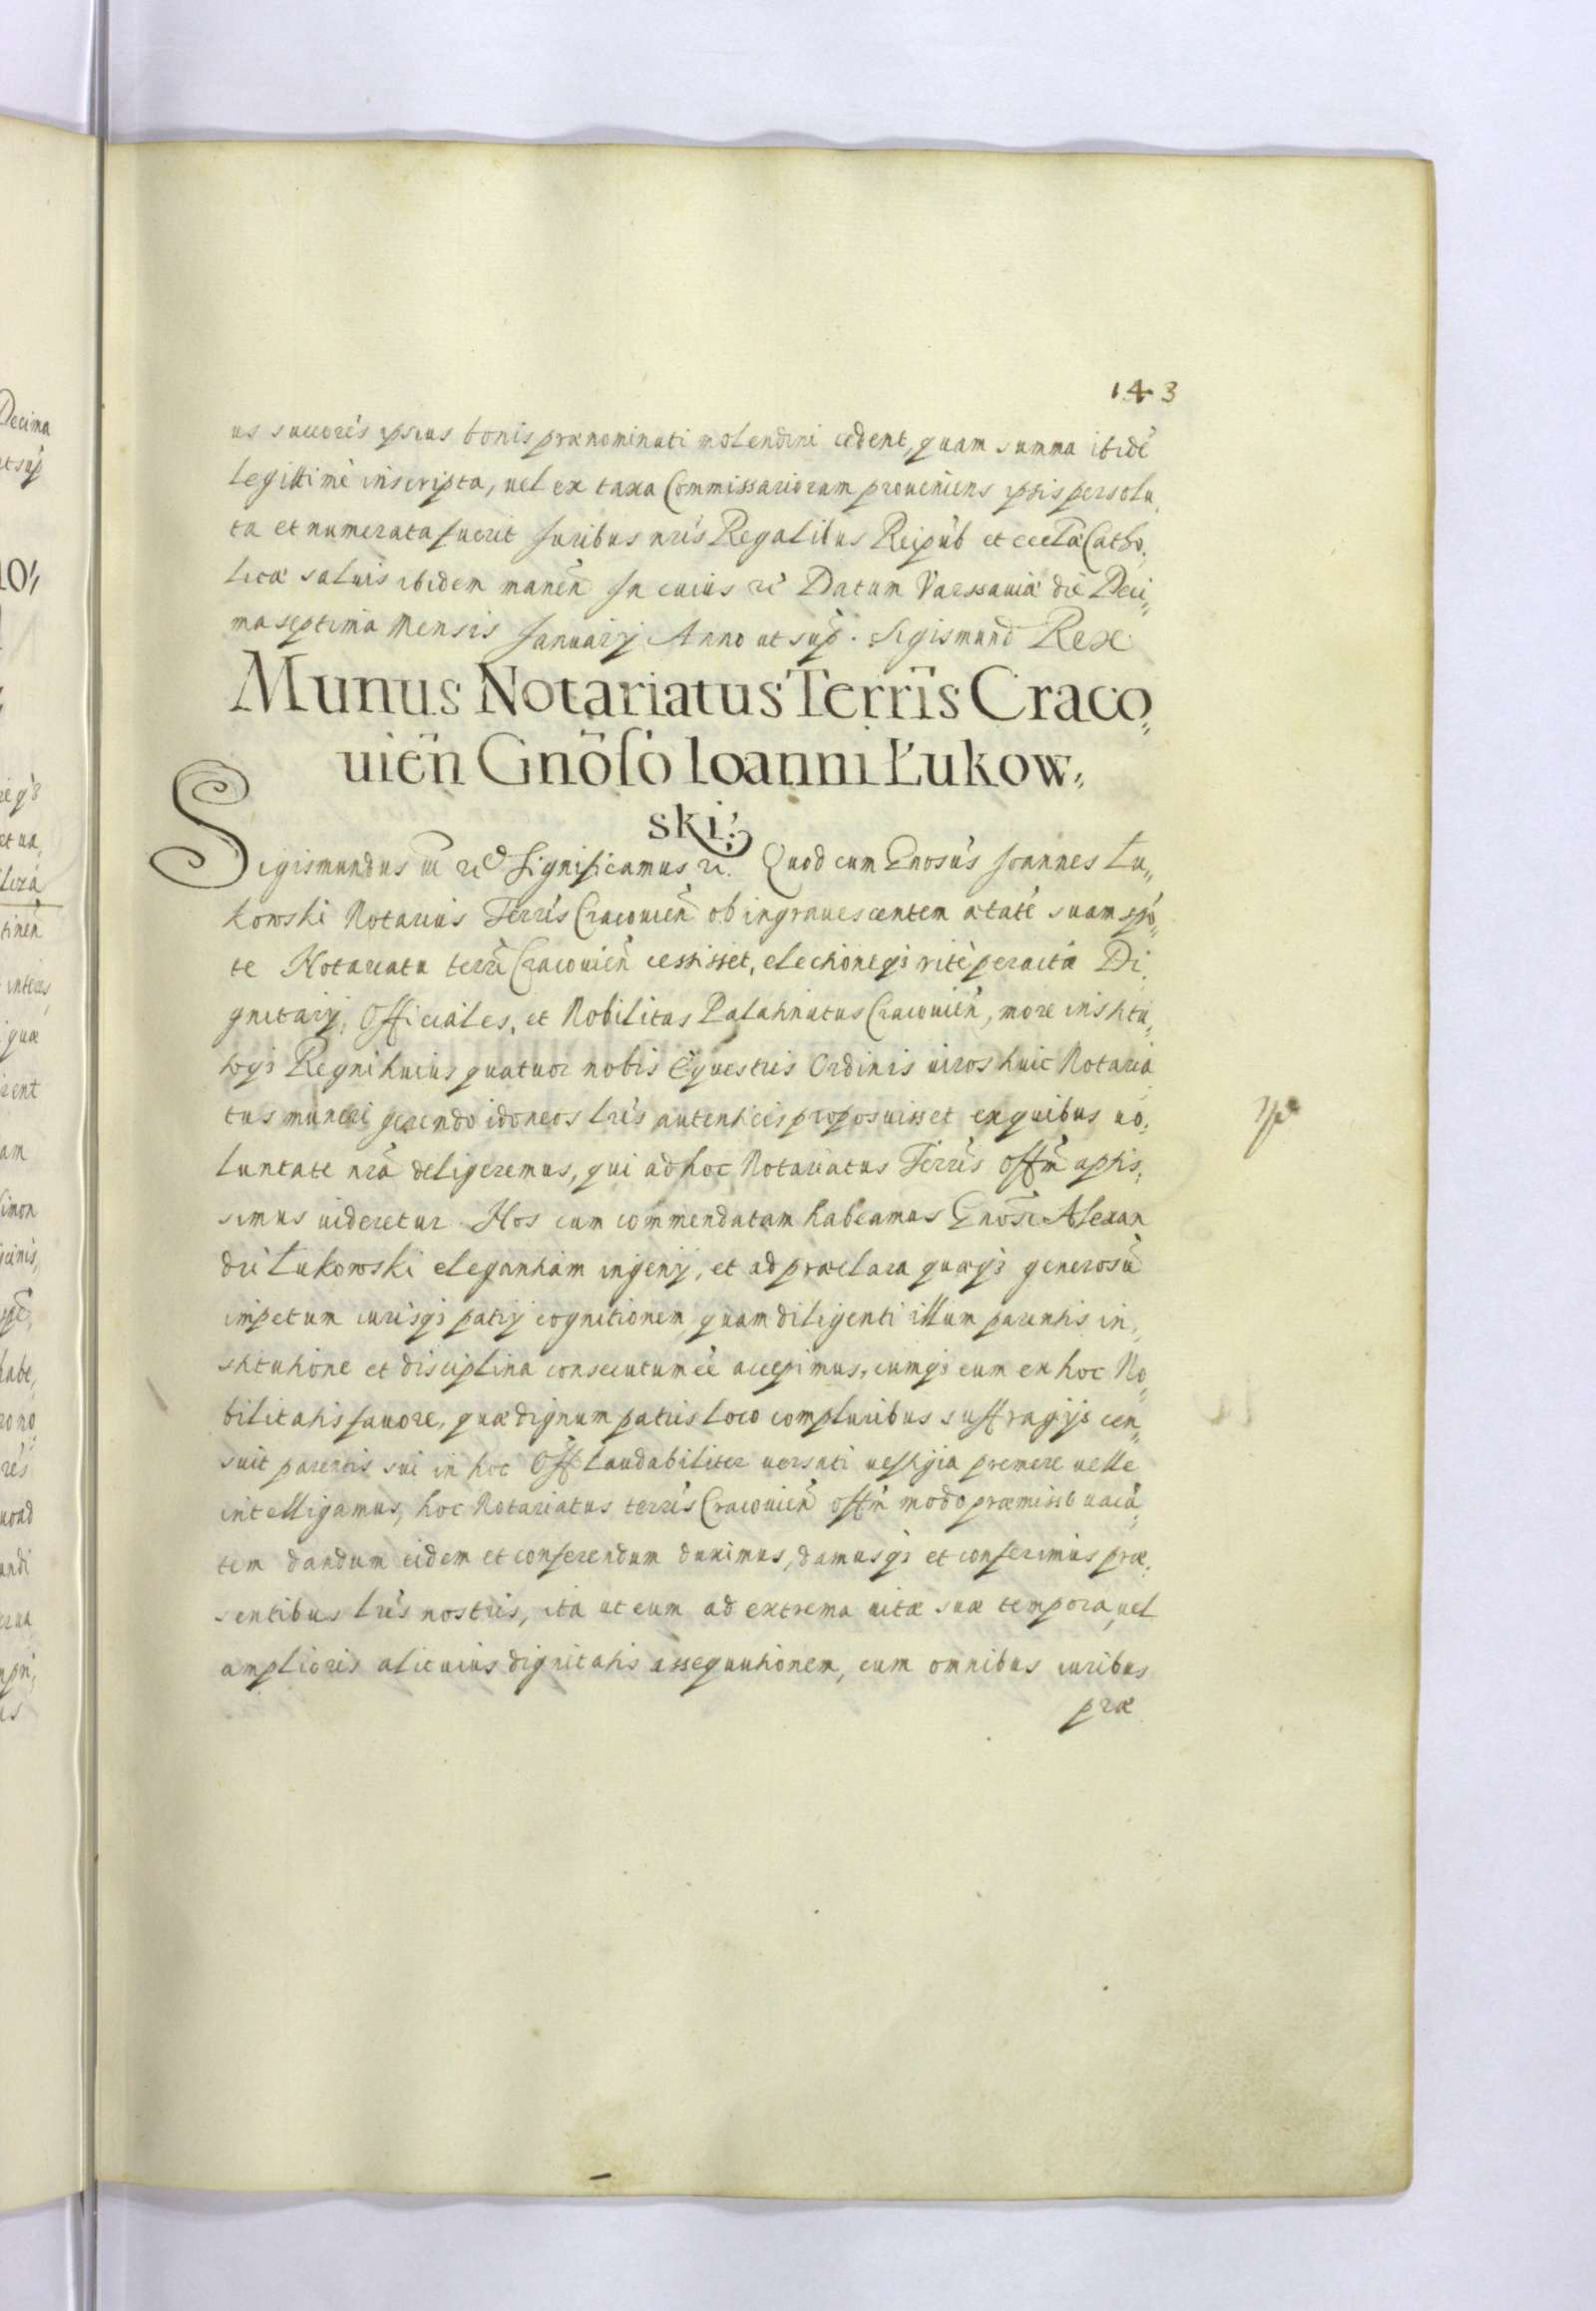 143
us succorés ipsius bonis prænominati molendini cedent, quam summa ibidē
legittimè inscripta, uel ex taxa Commissariorum proueniens ipsis persolu„
ta et numerata fuerit Juribus nrīs Regalibus Reipub et eccłæ Catho„
licæ saluis ibidem manen̄ In cuius rē Datum Varssauiæ die Deci„
maseptima Mensis Januarij Anno ut sup̄. Sigismund Rex
Munus Notariatus Terrīs Craco„
uien̄ Gnōso Ioanni Łukow„
ski.
Sigismundus iii rc Significamus rc. Quod cum Gnosūs Joannes Łu„
kowski Notarius Terrīs Cracouien̄ ob ingrauescentem ætatē suam spō„
te Notariatu terrī Cracouien̄ cessisset, electioneq3 ritè peracta Di„
gnitarij, Officiales, et Nobilitas Palatinatus Cracouien̄, more institu„
toq3 Regni huius quatuor nobis Equestris Ordinis uiros huic Notaria
tus muneri gerendo idoneos lrīs autenticis proposuisset ex quibus uo„
luntate nrā deligeremus, qui ad hoc Notariatus Terrīs offm̄ aptis„
simus uideretur. Nos cum commendatam habeamus Gnosī Alexan
dri Łukowski elegantiam ingenij, et ad præclara quæq3 generosū
impetum iurisq3 patrij cognitionem, quam diligenti illum parentis in„
stitutione et disciplina consecutum eē accepimus, cumq3 eum ex hoc No„
bilitatis fauore, quæ dignum patris loco compluribus suffragijs cen„
suit parentis sui in hoc Off̄ laudabiliter uersati uestigia premere uelle
intelligamus, hoc Notariatus terrīs Cracouien̄ offm̄ modo præmisso uacā„
tem dandum eidem et conferendum duximus, damusq3 et conferimus præ„
sentibus lrīs nostris, ita ut eum ad extrema uitæ suæ tempora, uel
amplioris alicuius dignitatis assequutionem, cum omnibus iuribus
præ